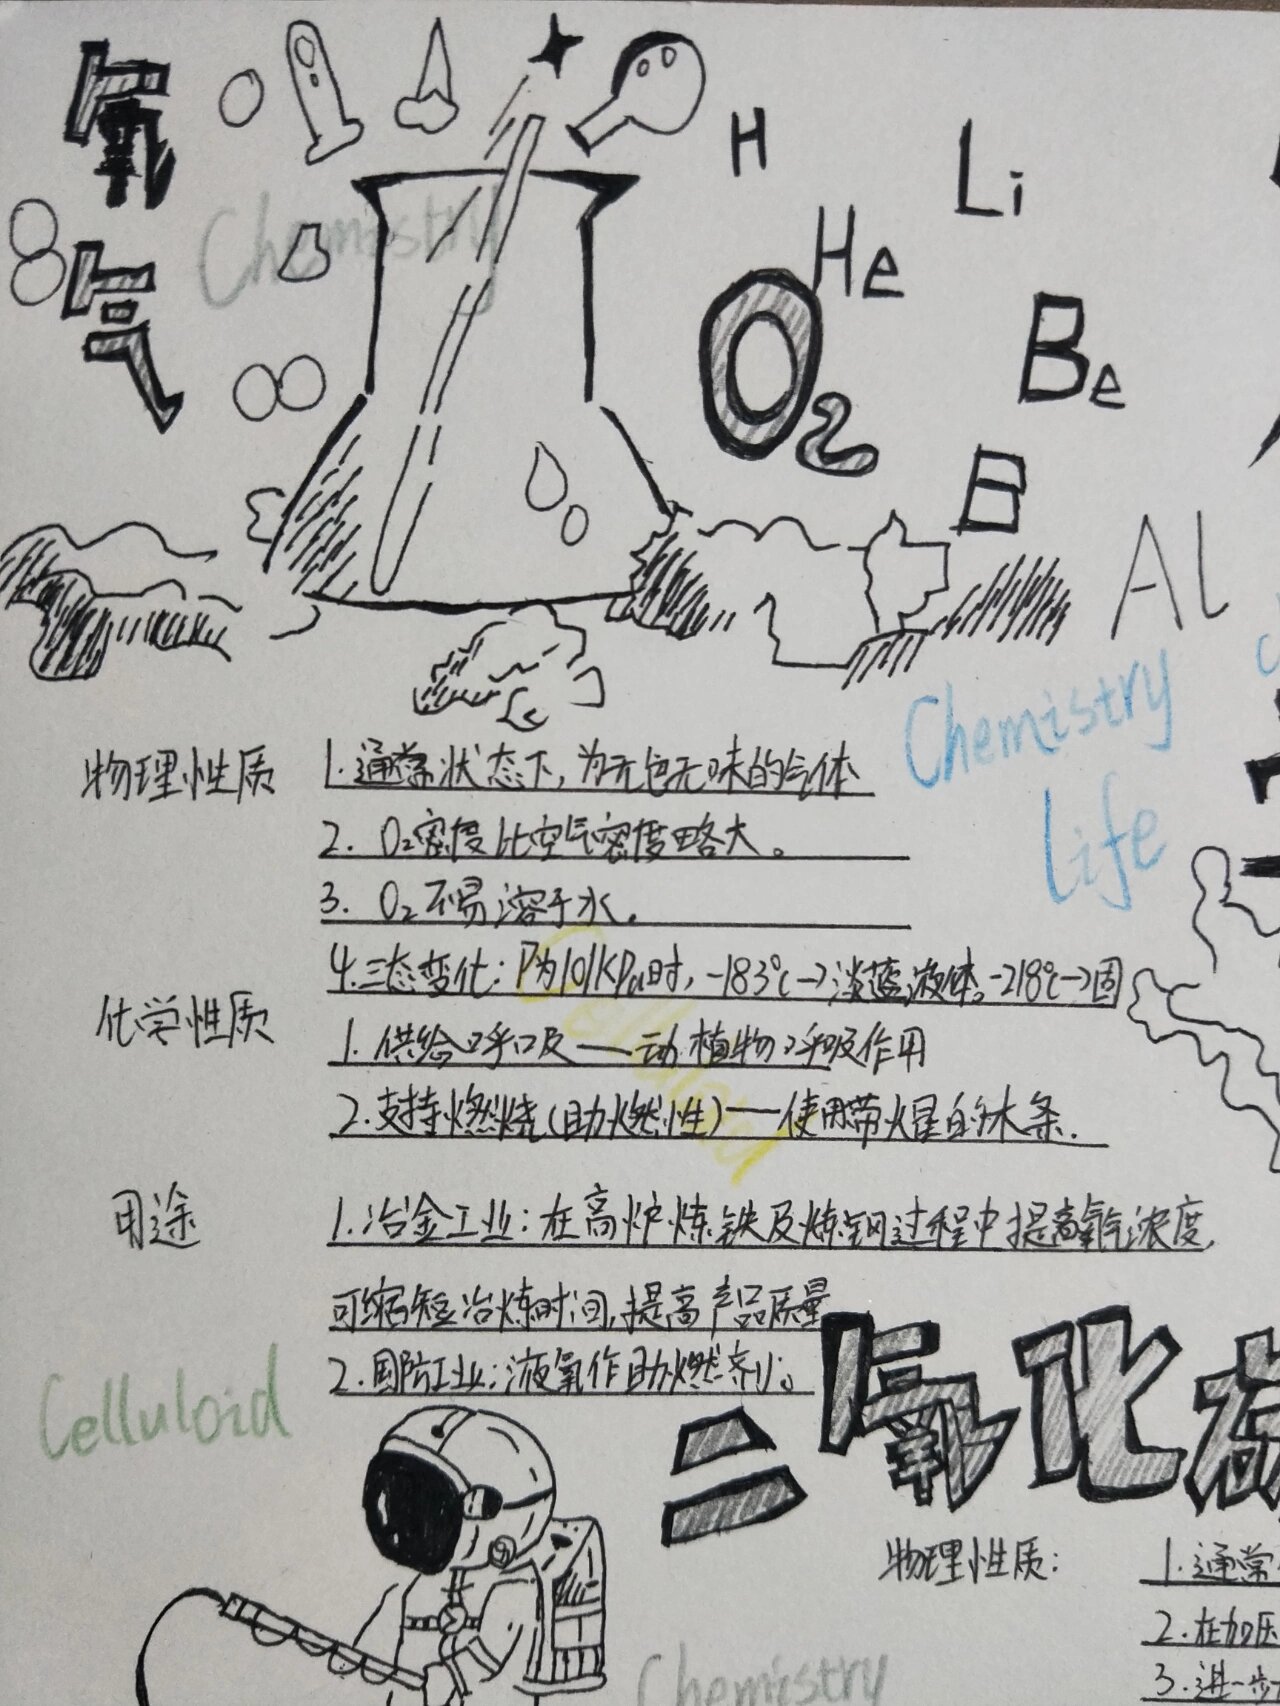 氧气
Chemistry
H
Li
He
O₂
Be
B
Al
Chemistry
Life
物理性质
1.通常状态下,为无色无味的气体
2. O₂密度比空气密度略大。
3. O₂不易溶于水。
4.三态变化:P为101KPa时,-183℃→淡蓝液体。-218℃→固
Celluloid
化学性质
1.供给呼吸——动植物呼吸作用
2.支持燃烧(助燃性)——使用带火星的木条.
用途
1.冶金工业:在高炉炼铁及炼钢过程中提高氧气浓度,
可缩短冶炼时间,提高产品质量
2.国防工业:液氧作助燃剂。
Celluloid
二氧化碳
物理性质:
1.通常
2.在加压
3.进一步
Chemistry